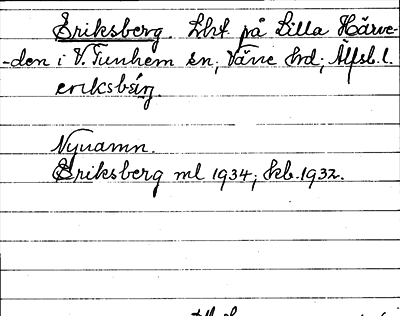 Eriksberg. Lht. på Lilla Härve-
-den i V. Tunhem sn, Väne hrd; Älfsb. l.
eriksbärg.
Nynamn.
Eriksberg ml 1934; kb. 1932.